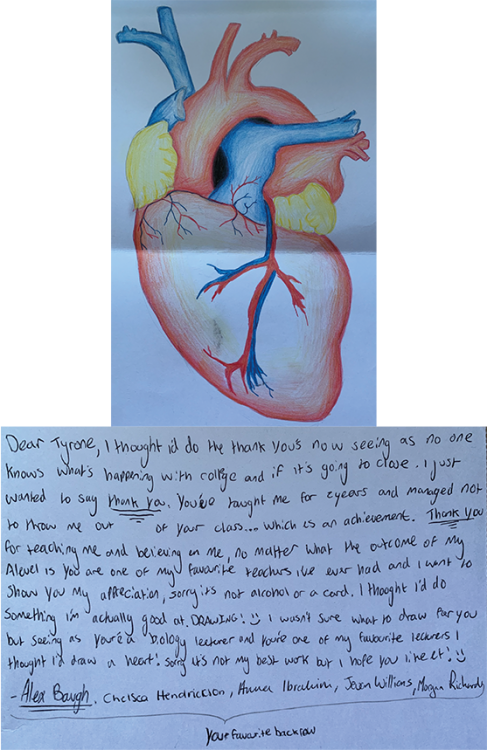 Dear Tyrone, I thought i'd do the thank yous now seeing as no one
knows what's happening with college and if it's going to close. I just
wanted to say thank you. You've taught me for 2years and managed not
to throw me out of your class... which is an achievement. Thank you
for teaching me and believing in me, no matter what the outcome of my
Alevel is you are one of my favourite teachers ive ever had and I want to
Show you my appreciation, sorry it's not alcohol or a card. I thought I'd do
something i'm actually good at, DRAWING! I wasn't sure what to draw for you
but seeing as you're a Biology lecturer and you're one of my favourite lecturers I
thought I'd draw a heart! sorry it's not my best work but I hope you like it!
- Alex Baugh, Chelsea Hendriccion, Ibrahim, Williams, Morgan
Your favourite back row